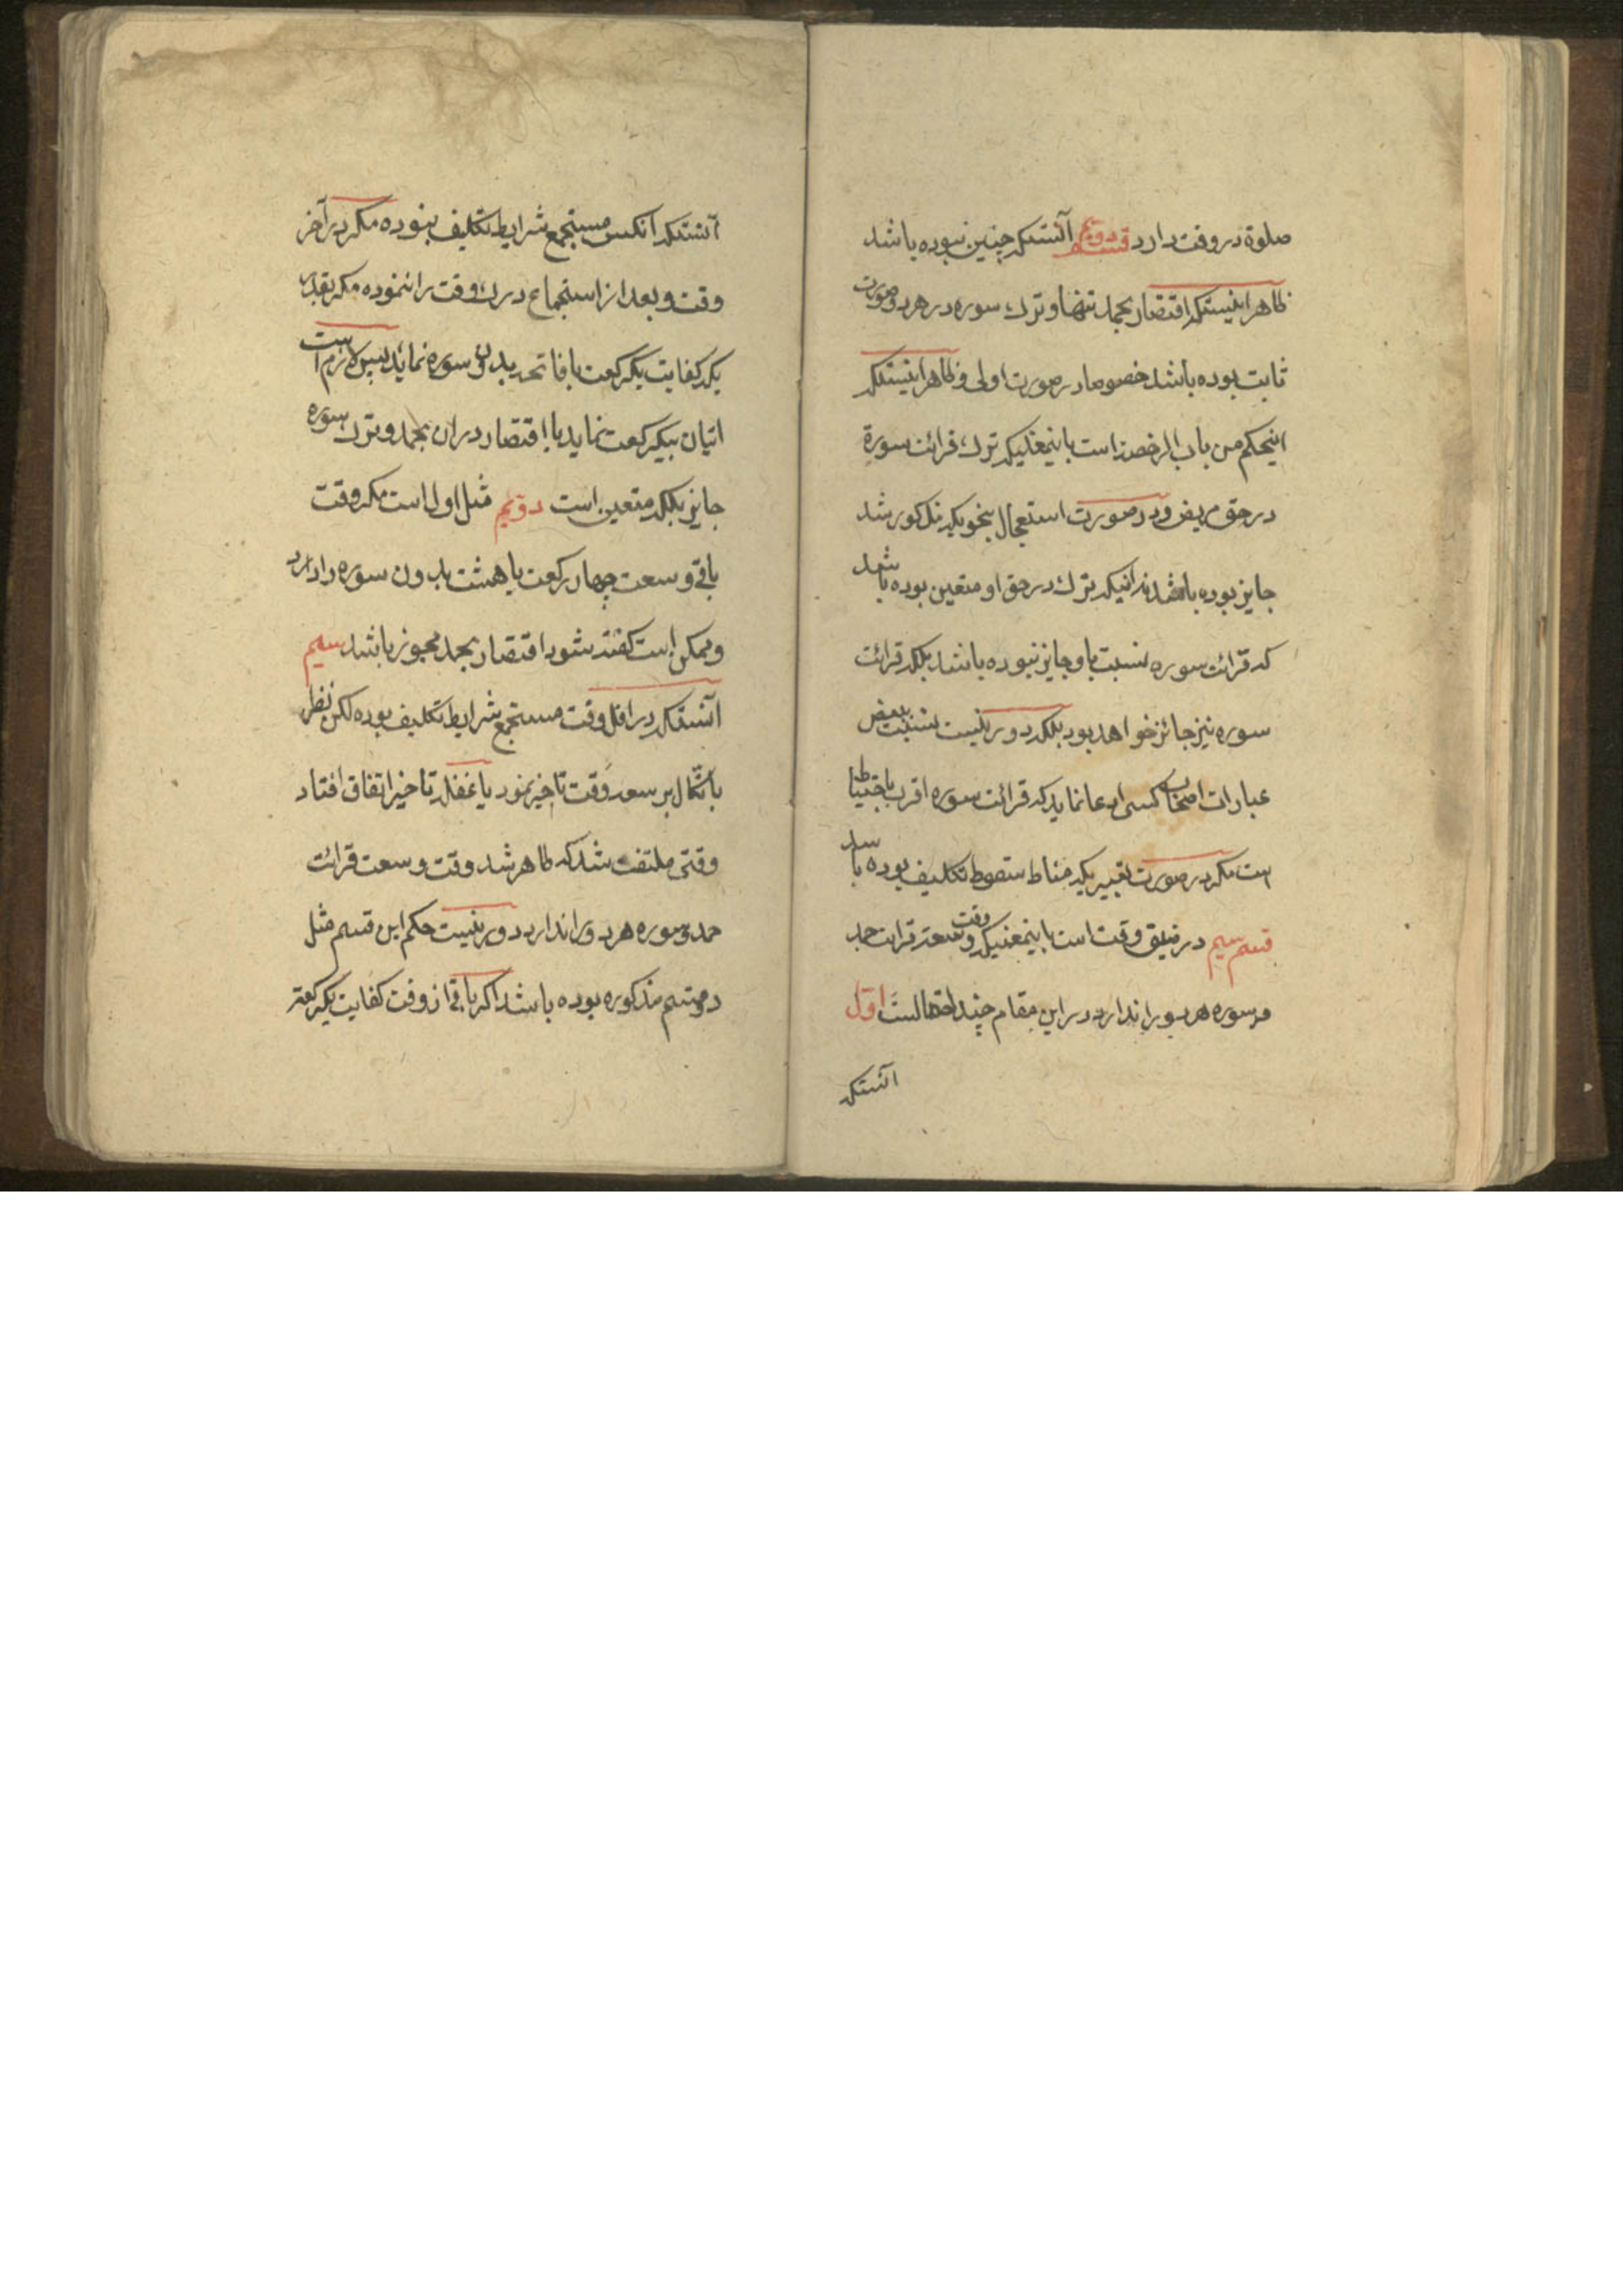 صلوة در وقت دارد قسم دویم آنستکه چنین نبوده باشد
ظاهر اینستکه اقتصار بحمد تنها و ترك سوره در هر دو صورت
ثابت بوده باشد خصوصا در صورت اولی و ظاهر اینستکه
اینحکم من باب الرخصة است باینمعنیکه ترك قرائت سورة
در حق مریض و در صورت استعجال بنحویکه مذکور شد
جایز بوده باشد نه اینکه ترك در حق او متعین بوده باشد
که قرائت سوره نسبت باو جایز نبوده باشد بلکه قرائت
سوره نیز جائز خواهد بود بلکه دور نیست نسبت ببعض
عبارات اصحاب کسی ادعا نماید که قرائت سوره اقرب باحتیاط
است مگر در صورت تغییریکه مناط سقوط تکلیف بوده باشد
قسم سیم در ضیق وقت است باینمعنیکه وقت وسعت قرائت حمد
و سوره هر دو را ندارد در این مقام چند احتمالست اول
آنستکه
آنستکه آنکس مستجمع شرایط تکلیف نبوده مگر در آخر
وقت و بعد از استجماع درك وقت را ننموده مگر بقدر
یکه کفایت یکرکعت با فاتحه بدون سوره نماید پس لازم است
اتیان بیکرکعت نماید با اقتصار در ان بحمد و ترك سوره
جایز بلکه متعین است دویم مثل اول است مگر وقت
باقی وسعت چهار رکعت یا هشت بدون سوره را دارد
و ممکن است گفته شود اقتصار بحمد مجوز باشد سیم
آنستکه در اول وقت مستجمع شرایط تکلیف بوده لکن نظر
باتکال بر سعه وقت تاخیر نمود یا غفلة تاخیر اتفاق افتاد
وقتی ملتفت شد که ظاهر شد وقت وسعت قرائت
حمد و سوره هر دو را ندارد دور نیست حکم این قسم مثل
دو قسم مذکوره بوده باشد اگر باقی از وقت کفایت یکرکعت